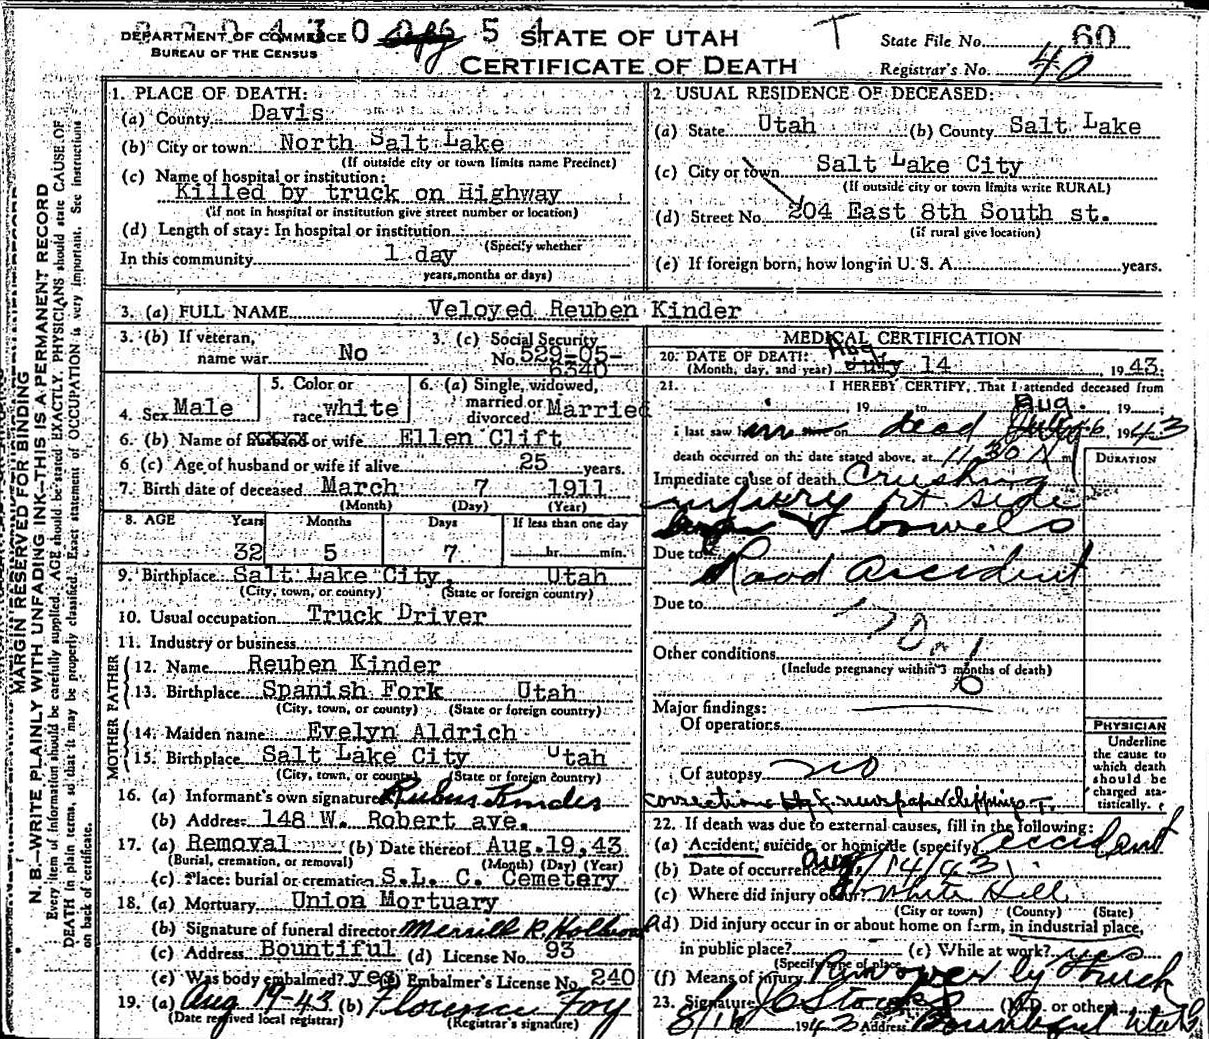 DEPARTMENT OF COMMERCE
BUREAU OF THE CENSUS
STATE OF UTAH
CERTIFICATE OF DEATH
State File No. 60
Registrar's No. 40
MARGIN RESERVED FOR BINDING
N. B.—WRITE PLAINLY WITH UNFADING INK—THIS IS A PERMANENT RECORD
Every item of information should be carefully supplied. AGE should be stated EXACTLY. PHYSICIANS should state CAUSE OF
DEATH in plain terms, so that it may be properly classified. Exact statement of OCCUPATION is very important. See instructions
on back of certificate.
1. PLACE OF DEATH:
(a) County Davis
(b) City or town North Salt Lake
(If outside city or town limits name Precinct)
(c) Name of hospital or institution:
Killed by truck on Highway
(If not in hospital or institution give street number or location)
(d) Length of stay: In hospital or institution
(Specify whether
In this community 1 day
years, months or days)
2. USUAL RESIDENCE OF DECEASED:
(a) State Utah (b) County Salt Lake
(c) City or town Salt Lake City
(If outside city or town limits write RURAL)
(d) Street No. 204 East 8th South st.
(if rural give location)
(e) If foreign born, how long in U. S. A. years.
3. (a) FULL NAME Veloyed Reuben Kinder
3. (b) If veteran, name war No
3. (c) Social Security No. 529-05-6340
4. Sex Male
5. Color or race white
6. (a) Single, widowed, married or divorced Married
6. (b) Name of or wife Ellen Clift
6 (c) Age of husband or wife if alive 25 years.
7. Birth date of deceased March 7 1911
(Month) (Day) (Year)
8. AGE Years Months Days If less than one day
32 5 7 hr. min.
9. Birthplace Salt Lake City, Utah
(City, town, or county) (State or foreign country)
10. Usual occupation Truck Driver
11. Industry or business
FATHER
12. Name Reuben Kinder
13. Birthplace Spanish Fork Utah
(City, town, or county) (State or foreign country)
MOTHER
14. Maiden name Evelyn Aldrich
15. Birthplace Salt Lake City Utah
(City, town, or county) (State or foreign country)
16. (a) Informant's own signature Kinder
(b) Address 148 W. Robert ave.
17. (a) Removal (b) Date thereof Aug. 19, 43
(Burial, cremation, or removal) (Month) (Day) (Year)
(c) Place: burial or cremation S.L. C. Cemetery
18. (a) Mortuary Union Mortuary
(b) Signature of funeral director Merrill R. Holbrook
(c) Address Bountiful (d) License No. 93
(e) Was body embalmed? yes Embalmer's License No. 240
19. (a) Aug 19-43 (b) Florence Foy
(Date received local registrar) (Registrar's signature)
MEDICAL CERTIFICATION
20. DATE OF DEATH: Aug July 14, 1943
(Month, day, and year)
21. I HEREBY CERTIFY, That I attended deceased from
, 19 to Aug. 19
I last saw him on dead 1943
death occurred on the date stated above, at 11:30 A m
DURATION
Immediate cause of death Crushing
injury rt side
& bowels
Due to
Road accident
Due to
Other conditions
(Include pregnancy within 3 months of death)
Major findings:
Of operations
Of autopsy no
corrections newspaper clippings
PHYSICIAN
Underline
the cause to
which death
should be
charged sta-
tistically.
22. If death was due to external causes, fill in the following:
(a) Accident, suicide, or homicide (specify) accident
(b) Date of occurrence Aug/14/43
(c) Where did injury occur? White Hill
(City or town) (County) (State)
(d) Did injury occur in or about home on farm, in industrial place,
in public place? (e) While at work?
(Specify type of place)
(f) Means of injury Run over by truck
23. Signature (M.D. or other)
8/16 1943 Address Bountiful Utah